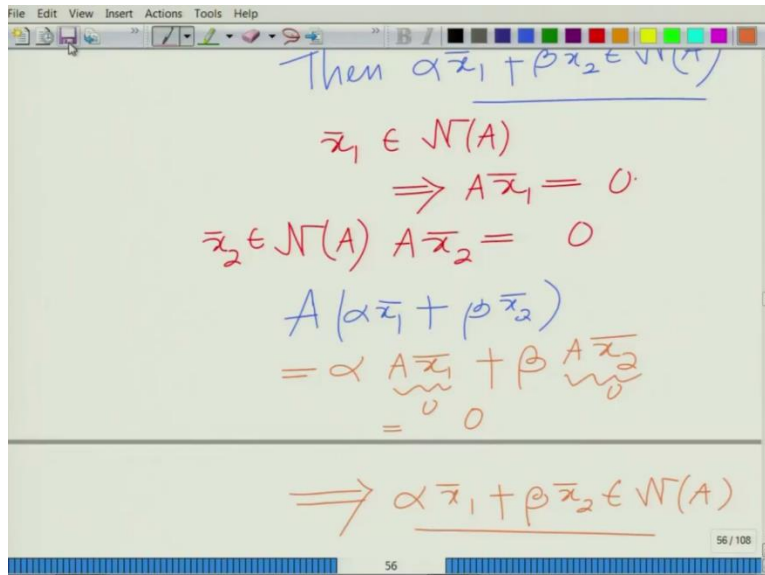 File Edit View Insert Actions Tools Help
Then αx̄₁ + βx₂ ∈ N(A)
x̄₁ ∈ N(A)
⇒ Ax̄₁ = 0.
x̄₂ ∈ N(A) Ax̄₂ = 0
A(αx̄₁ + βx̄₂)
= α Ax̄₁ + β Ax̄₂
0 0
= 0
⇒ αx̄₁ + βx̄₂ ∈ N(A)
56 / 108
56